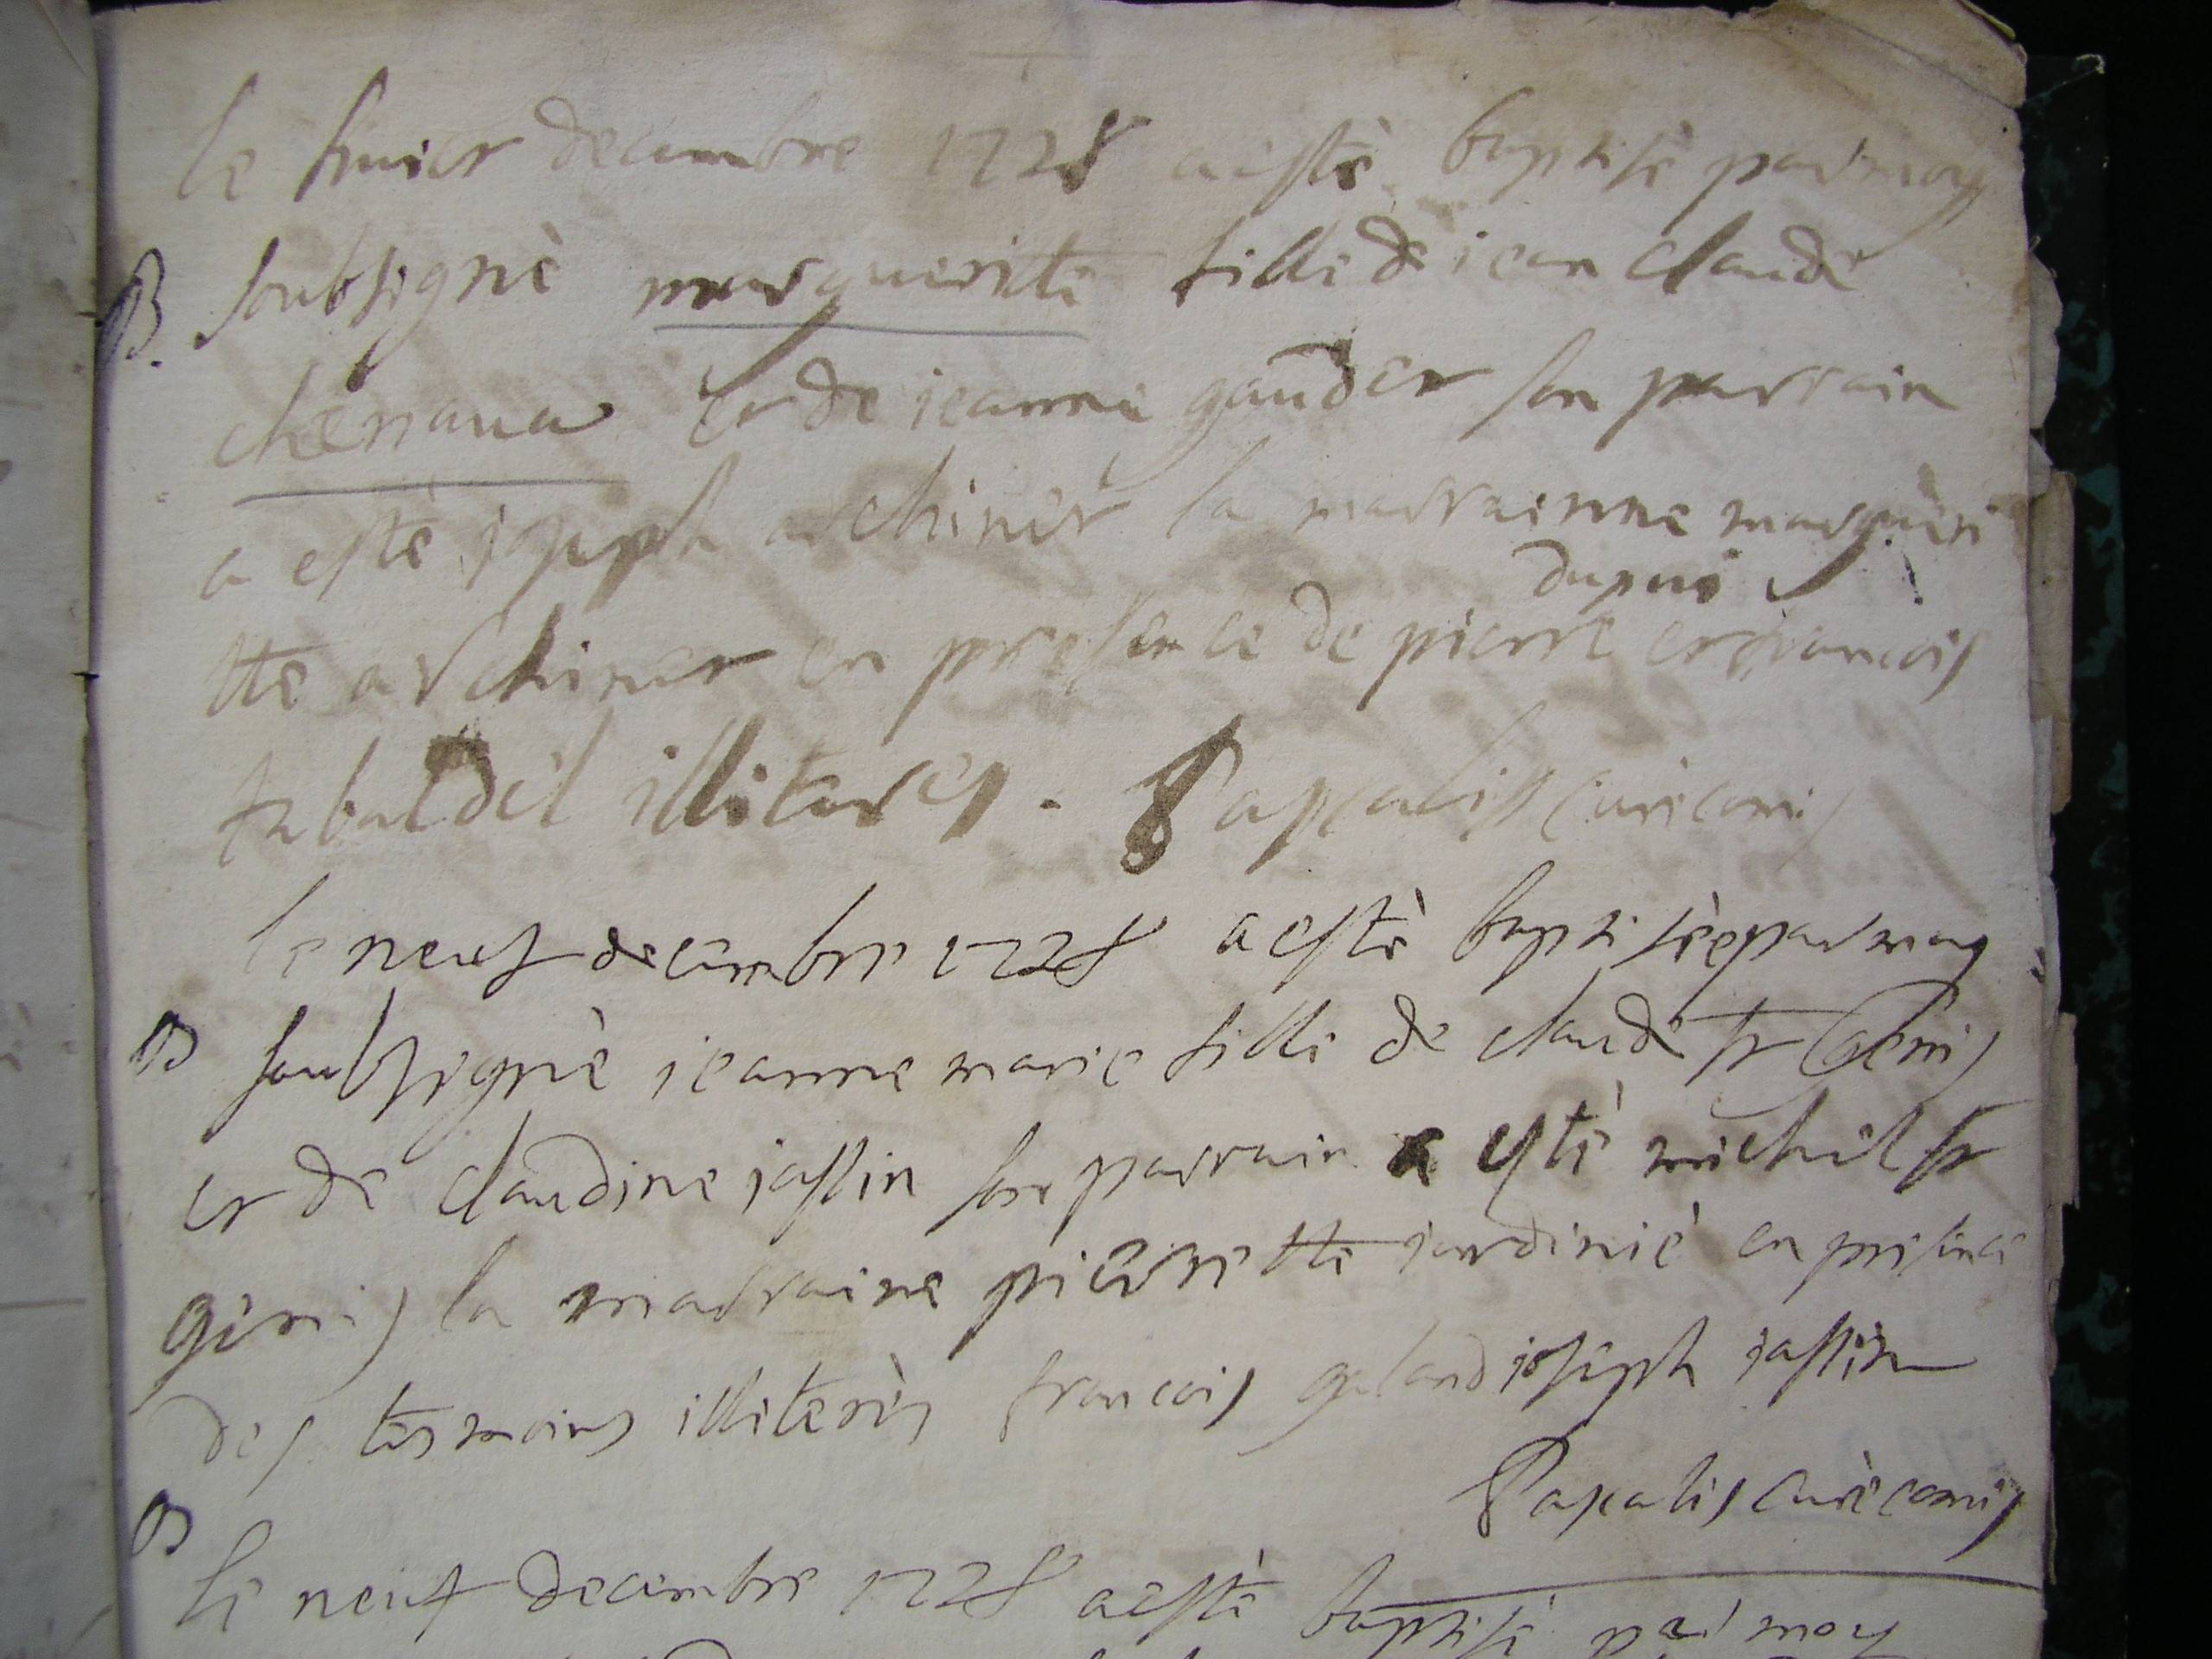 le huict decembre 1728 a esté baptisé par moy
B. soubsigné marguerite fille de jean claude
chenaua et de jeanne gauder son parrain
a esté joseph archiner la marrainne margueri
dupui
tte archiner en presence de pierre et francois
illitares. Pascalis curé comis
le neuf decembre 1728 a esté baptiséé par moy
B soubsigné jeanne marie fille de claude fr Genis
et de claudine jaslin son parrain a esté michel fr
genis la marraine pierrette jardinié en presence
des tesmoins illiterés francois galand joseph jaslin
Pascalis curé comis
B
le neuf decembre 1728 a esté baptisé par moy